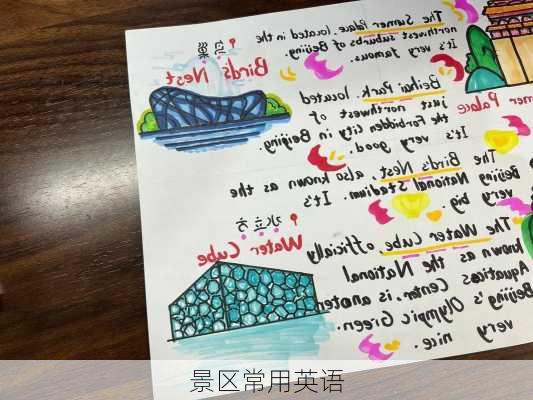 The Summer Palace, located in the
northwest suburbs of Beijing.
It's very famous.
Beihai Park, located
just northwest of
the Forbidden City in Beijing.
It's very good.
The Bird's Nest, also known as the
Beijing National Stadium. It's
very big.
The Water Cube, officially
known as the National
Aquatics Center, is another
Beijing's Olympic Green.
very nice.
鸟巢
Bird's Nest
水立方
Water Cube
mer Palace
景区常用英语